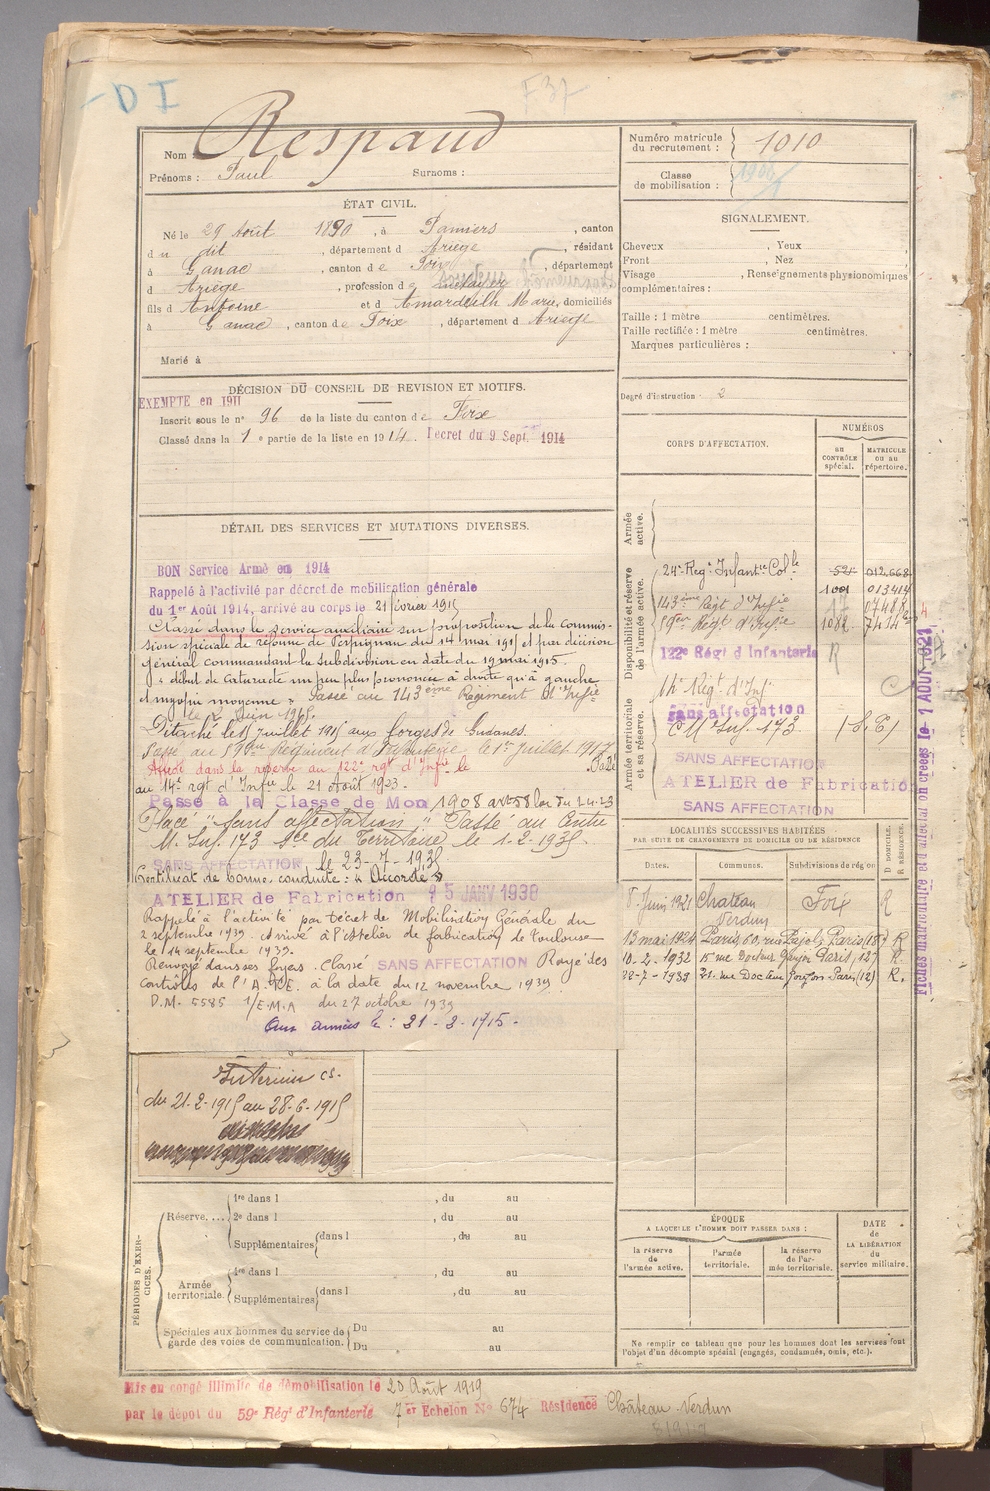 D I
F37
Nom : Respaud
Prénoms : Paul Surnoms :
Numéro matricule du recrutement : 1010
Classe de mobilisation :
ÉTAT CIVIL.
Né le 29 Août 1890, à Pamiers, canton
du dit, département d Ariège, résidant
à Ganac, canton de Foix, département
d Ariège, profession de
fils d Antoine et d Amardeilh Marie, domiciliés
à Ganac, canton de Foix, département d Ariège
Marié à
SIGNALEMENT.
Cheveux , Yeux ,
Front , Nez ,
Visage , Renseignements physionomiques
complémentaires :
Taille : 1 mètre centimètres.
Taille rectifiée : 1 mètre centimètres.
Marques particulières :
Degré d'instruction : 2
DÉCISION DU CONSEIL DE REVISION ET MOTIFS.
EXEMPTÉ en 1911
Inscrit sous le n° 96 de la liste du canton de Foix
Classé dans la 1e partie de la liste en 1914. Décret du 9 Sept. 1914
DÉTAIL DES SERVICES ET MUTATIONS DIVERSES.
BON Service Armé en 1914
Rappelé à l'activité par décret de mobilisation générale
du 1er Août 1914, arrivé au corps le 21 février 1915
Classé dans le service auxiliaire sur proposition de la commis-
sion spéciale de réforme de Perpignan du 14 mai 1915 et par décision
général commandant la subdivision en date du 19 mai 1915.
"début de Cataracte un peu plus prononcée à droite qu'à gauche
et myopie moyenne" Passé au 143ème Régiment d'Infie
le 2 Juin 1915.
Détaché le 15 Juillet 1915 aux forges de Gudanes.
Passé au 59ème Régiment d'Infanterie le 1er Juillet 1917
Affecté dans la réserve au 122e rgt d'Infie le . Passé
au 14e rgt d'Infie le 21 Août 1923.
Passé à la Classe de Mon 1908 art 58 loi du 1.4.23
Placé "sans affectation" Passé au Centre
M. Inf. 173 Sce du Territoire le 1-2-1935.
SANS AFFECTATION le 23-7-1935
Certificat de bonne conduite : "Accordé"
ATELIER de Fabrication 15 JANV 1938
Rappelé à l'activité par décret de Mobilisation Générale du
2 septembre 1939. Arrivé à l'Atelier de fabrication de Toulouse
le 14 septembre 1939.
Renvoyé dans ses foyers. Classé SANS AFFECTATION Rayé des
contrôles de l'A.R.E. à la date du 12 novembre 1939
D.M. 5585 1/E.M.A du 27 octobre 1939
Aux armées le : 21-2-1915.
Intérieur cs.
du 21-2-1915 au 28-6-1915
CORPS D'AFFECTATION.
NUMÉROS
au contrôle spécial.
matricule ou au répertoire.
Armée active.
Disponibilité et réserve de l'armée active.
24e Régt Infantie Colle 521 012668
1001 013414
143ème Régt d'Infie 17 07488
59ème Régt d'Infie 1082 7414
122e Régt d'Infanterie R
Armée territoriale et sa réserve.
14e Régt d'Inf
Sans affectation
C M Inf. 173 (S.T)
SANS AFFECTATION
ATELIER de Fabrication
SANS AFFECTATION
Fiches matriculaire et d'affectation créées le 1 AOUT 1921
LOCALITÉS SUCCESSIVES HABITÉES
PAR SUITE DE CHANGEMENTS DE DOMICILE OU DE RÉSIDENCE
Dates. Communes. Subdivisions de région D DOMICILE. R RÉSIDENCE.
5 Juin 1921 Château Verdun Foix R
13 mai 1924 Paris 60, rue Pajol, Paris (18e) R
10-2-1932 15 rue Docteur Goujon Paris (12e) R.
28-2-1933 21. rue Docteur Goujon Paris (12) R.
PÉRIODES D'EXERCICES.
Réserve....
1re dans l , du au
2e dans l , du au
Supplémentaires dans l , du au
Armée territoriale.
1re dans l , du au
Supplémentaires dans l , du au
Spéciales aux hommes du service de garde des voies de communication.
Du au
Du au
ÉPOQUE
A LAQUELLE L'HOMME DOIT PASSER DANS :
la réserve de l'armée active.
l'armée territoriale.
la réserve de l'armée territoriale.
DATE DE LA LIBÉRATION du service militaire.
Ne remplir ce tableau que pour les hommes dont les services font
l'objet d'un décompte spécial (engagés, condamnés, omis, etc.).
Mis en congé illimité de démobilisation le 20 Août 1919
par le dépôt du 59e Régt d'Infanterie 7er Echelon N° 674 Résidence Château Verdun